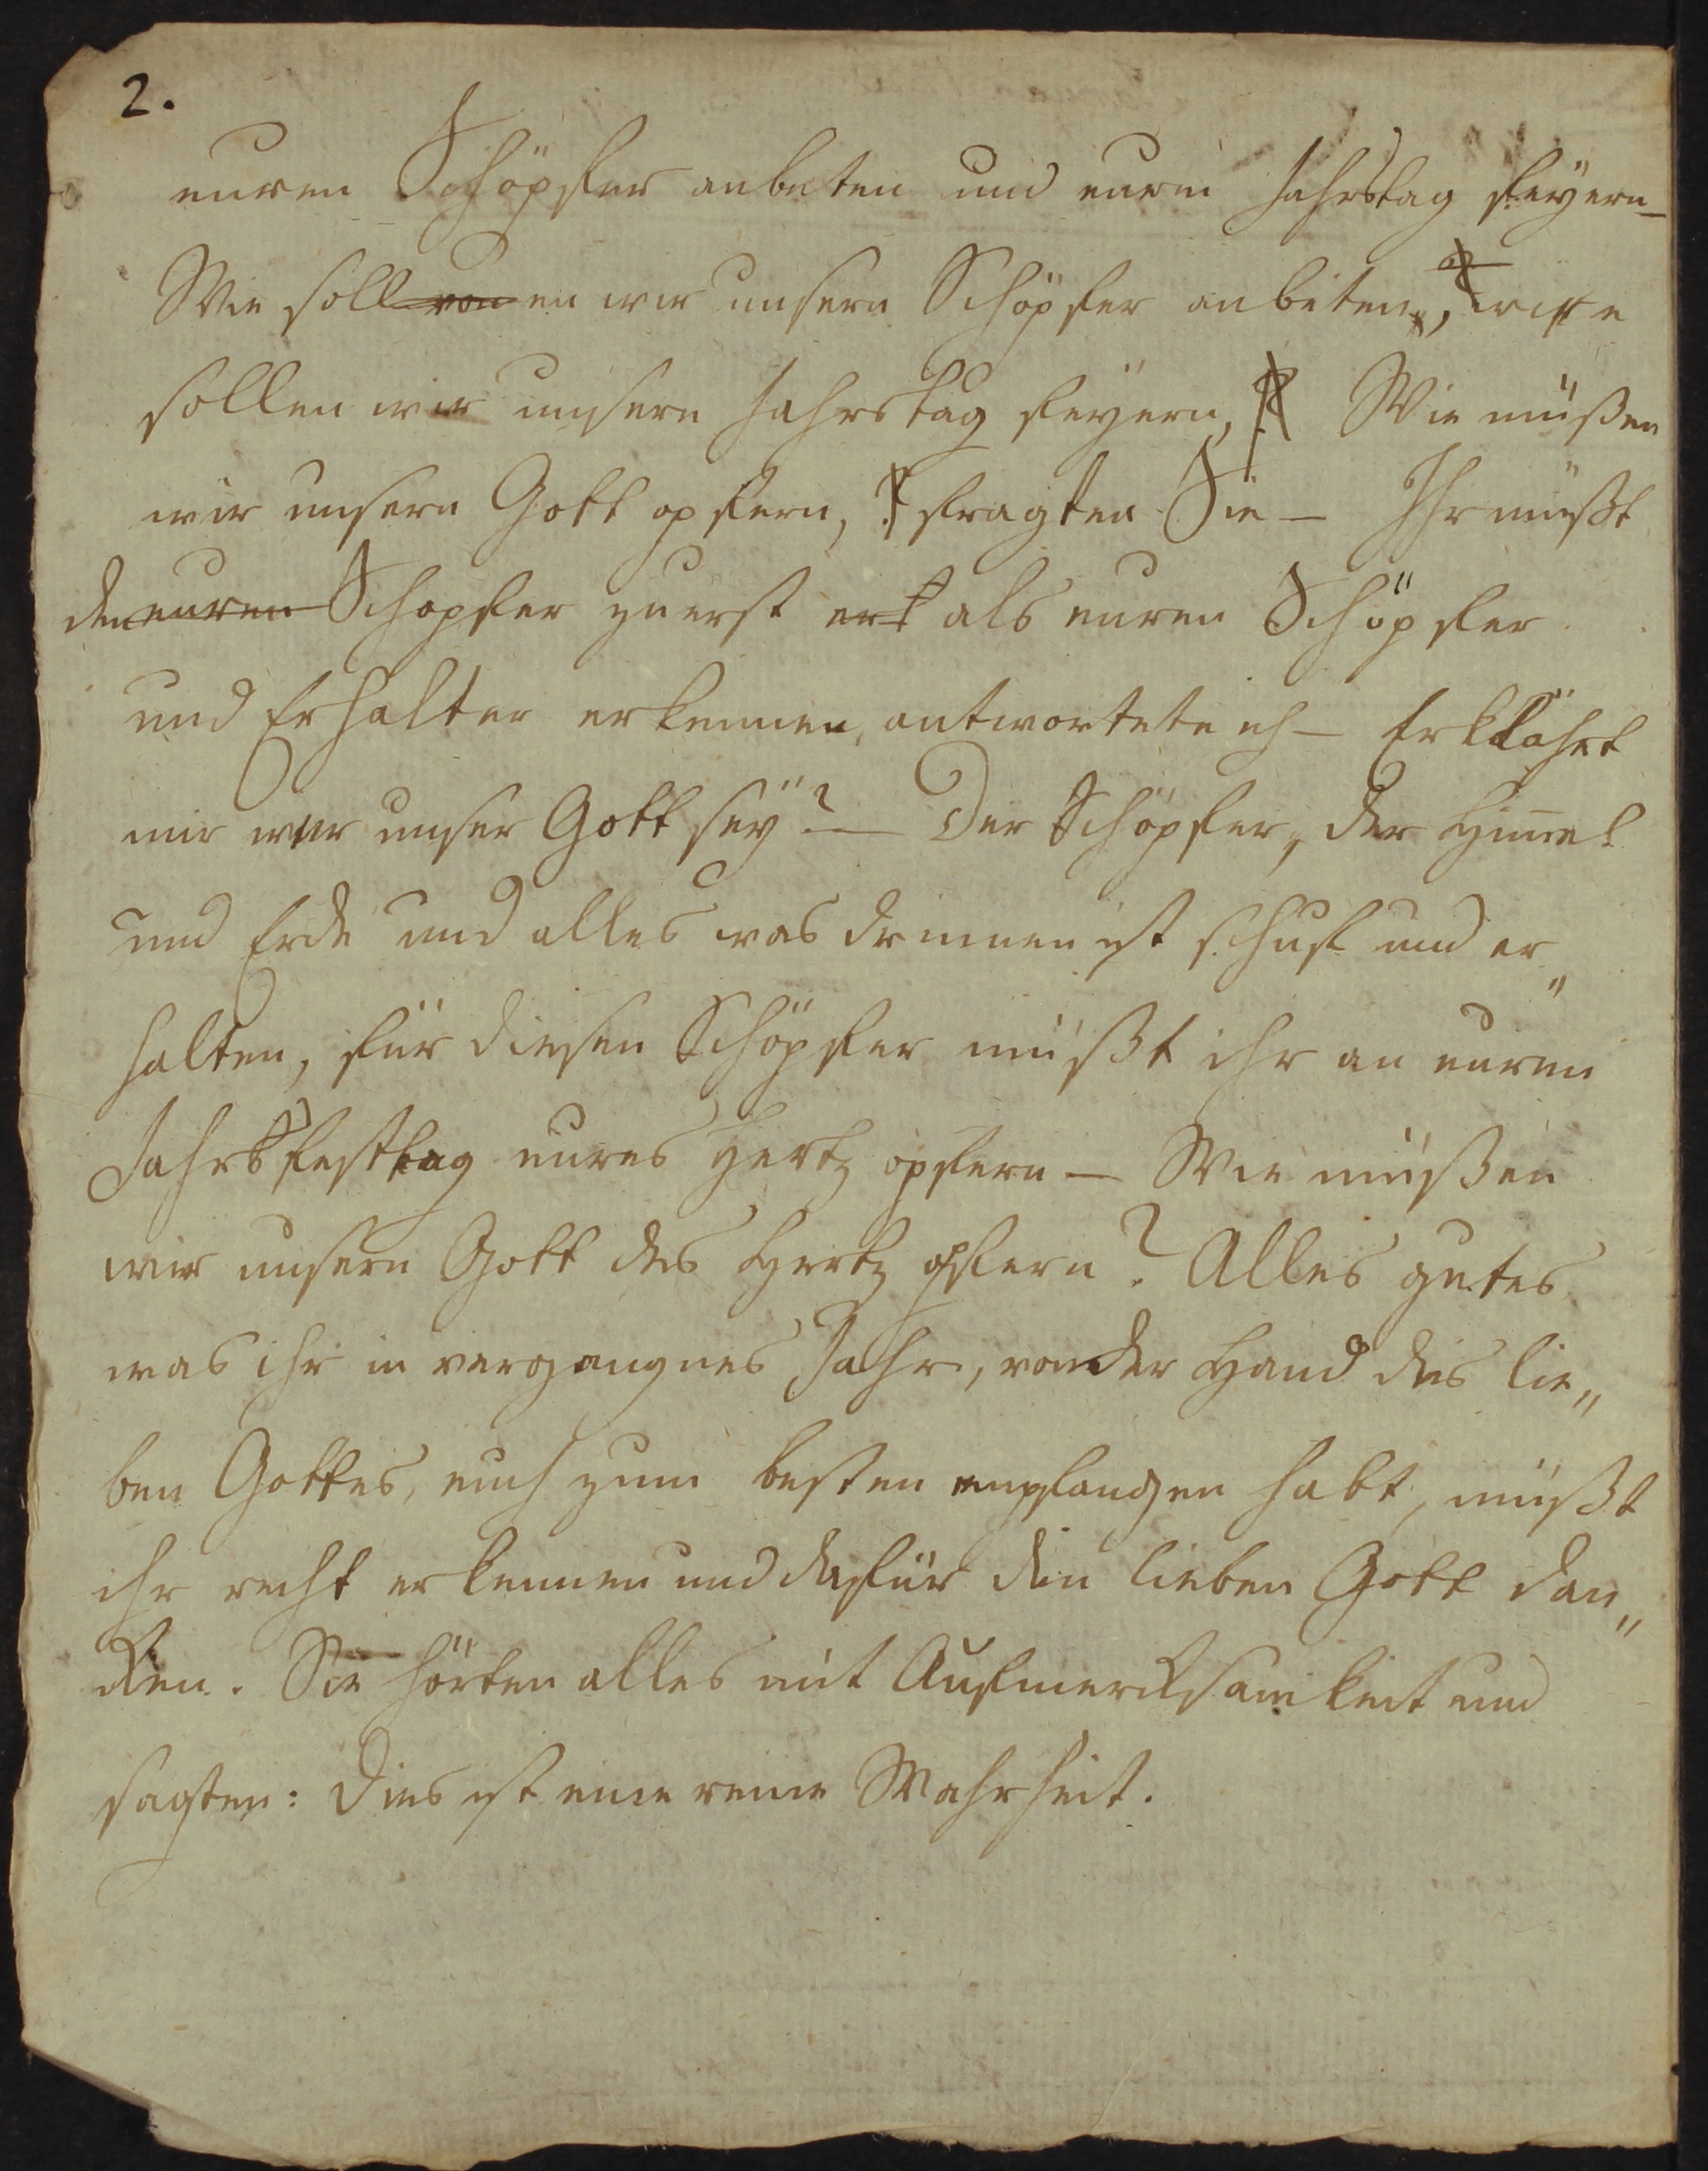 2.
euren Schöpfer anbeten und euren Jahrstag feyern_
Wie soll von en wir unsern Schöpfer anbeten, wie
sollen wir unsern Jahrstag feyern, Wie müßen
wir unsern Gott opfern, fragten Sie — Ihr müßt
den euren Schopfer zuerst erk als euren Schöpfer
und Erhalter erkennen, antwortete ich — Erklährt
mir wer unser Gott sey? — Der Schöpfer, der Himel
und Erde und alles was drinnen ist schuf und er„
halten, für diesen Schöpfer müßt ihr an euren
Jahrsfesttag eures Hertz opfern — Wie müßen
wir unsern Gott des Hertz opfern? Alles gutes
was ihr in vergangnes Jahr, von der Hand des lie„
ben Gottes, euch zum besten empfangen habt, müßt
ihr recht erkennen und dafür den lieben Gott dan„
ken. Sie hörten alles mit Aufmercksamkeit und
sagten: Dies ist eine reine Wahrheit.